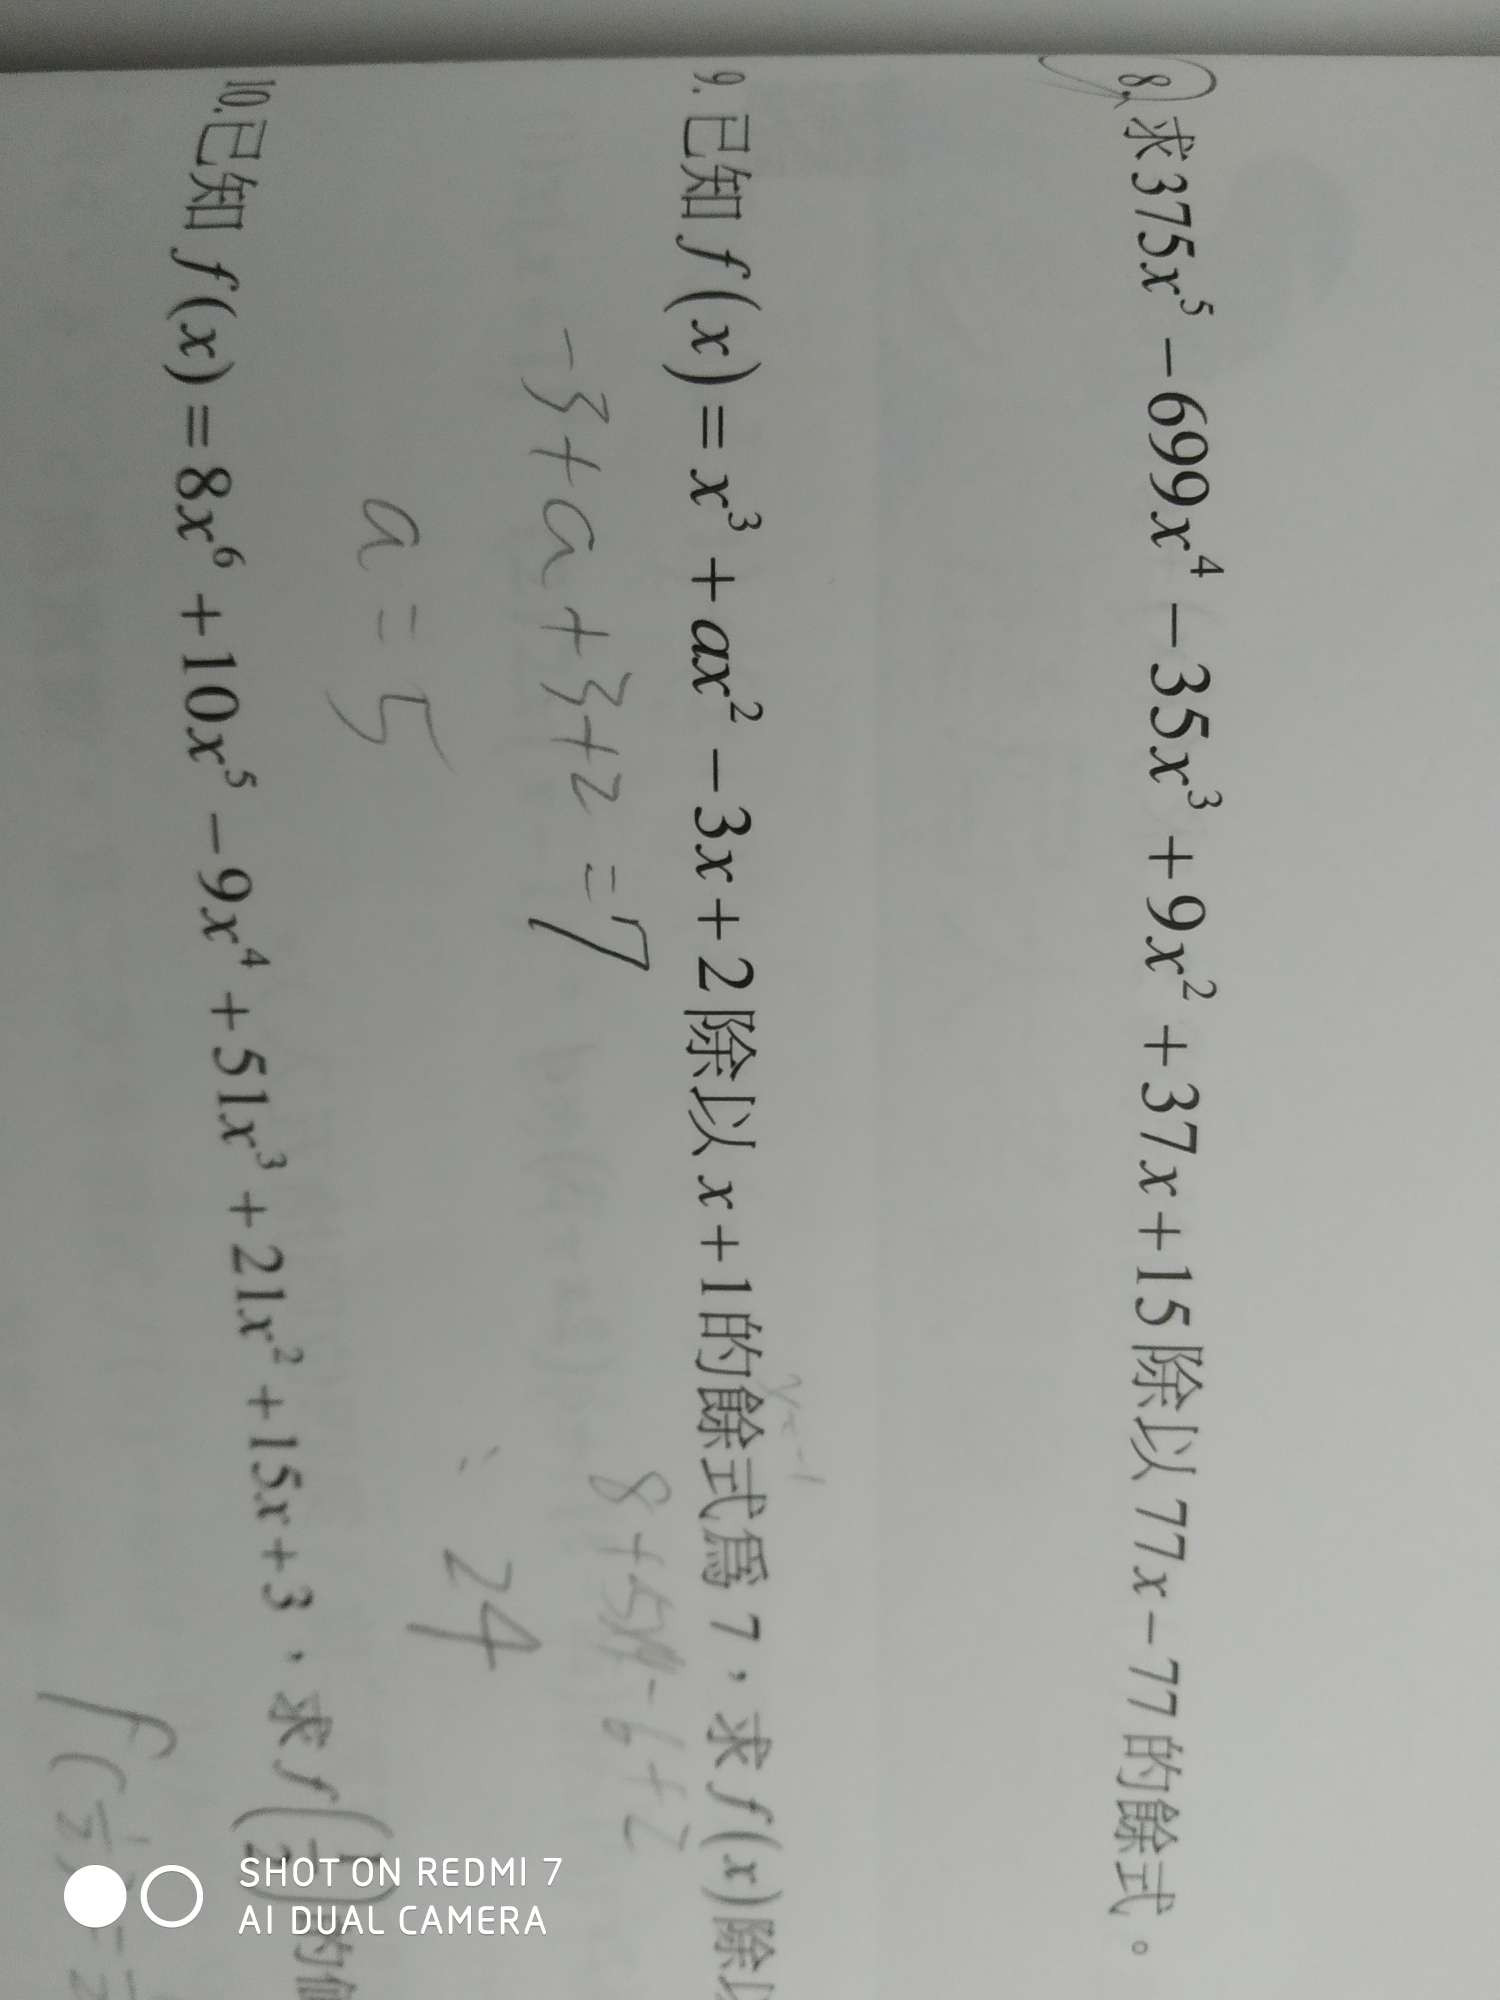 8. 求375x⁵−699x⁴−35x³+9x²+37x+15除以77x−77的餘式。
9. 已知f(x)=x³+ax²−3x+2除以x+1的餘式爲7,求f(x)除以
x=-1
-3+a+3+2=7
8+
-6+2
a=5
24
10.已知f(x)=8x⁶+10x⁵−9x⁴+51x³+21x²+15x+3,求f(1/2)的值
f(
SHOT ON REDMI 7
AI DUAL CAMERA